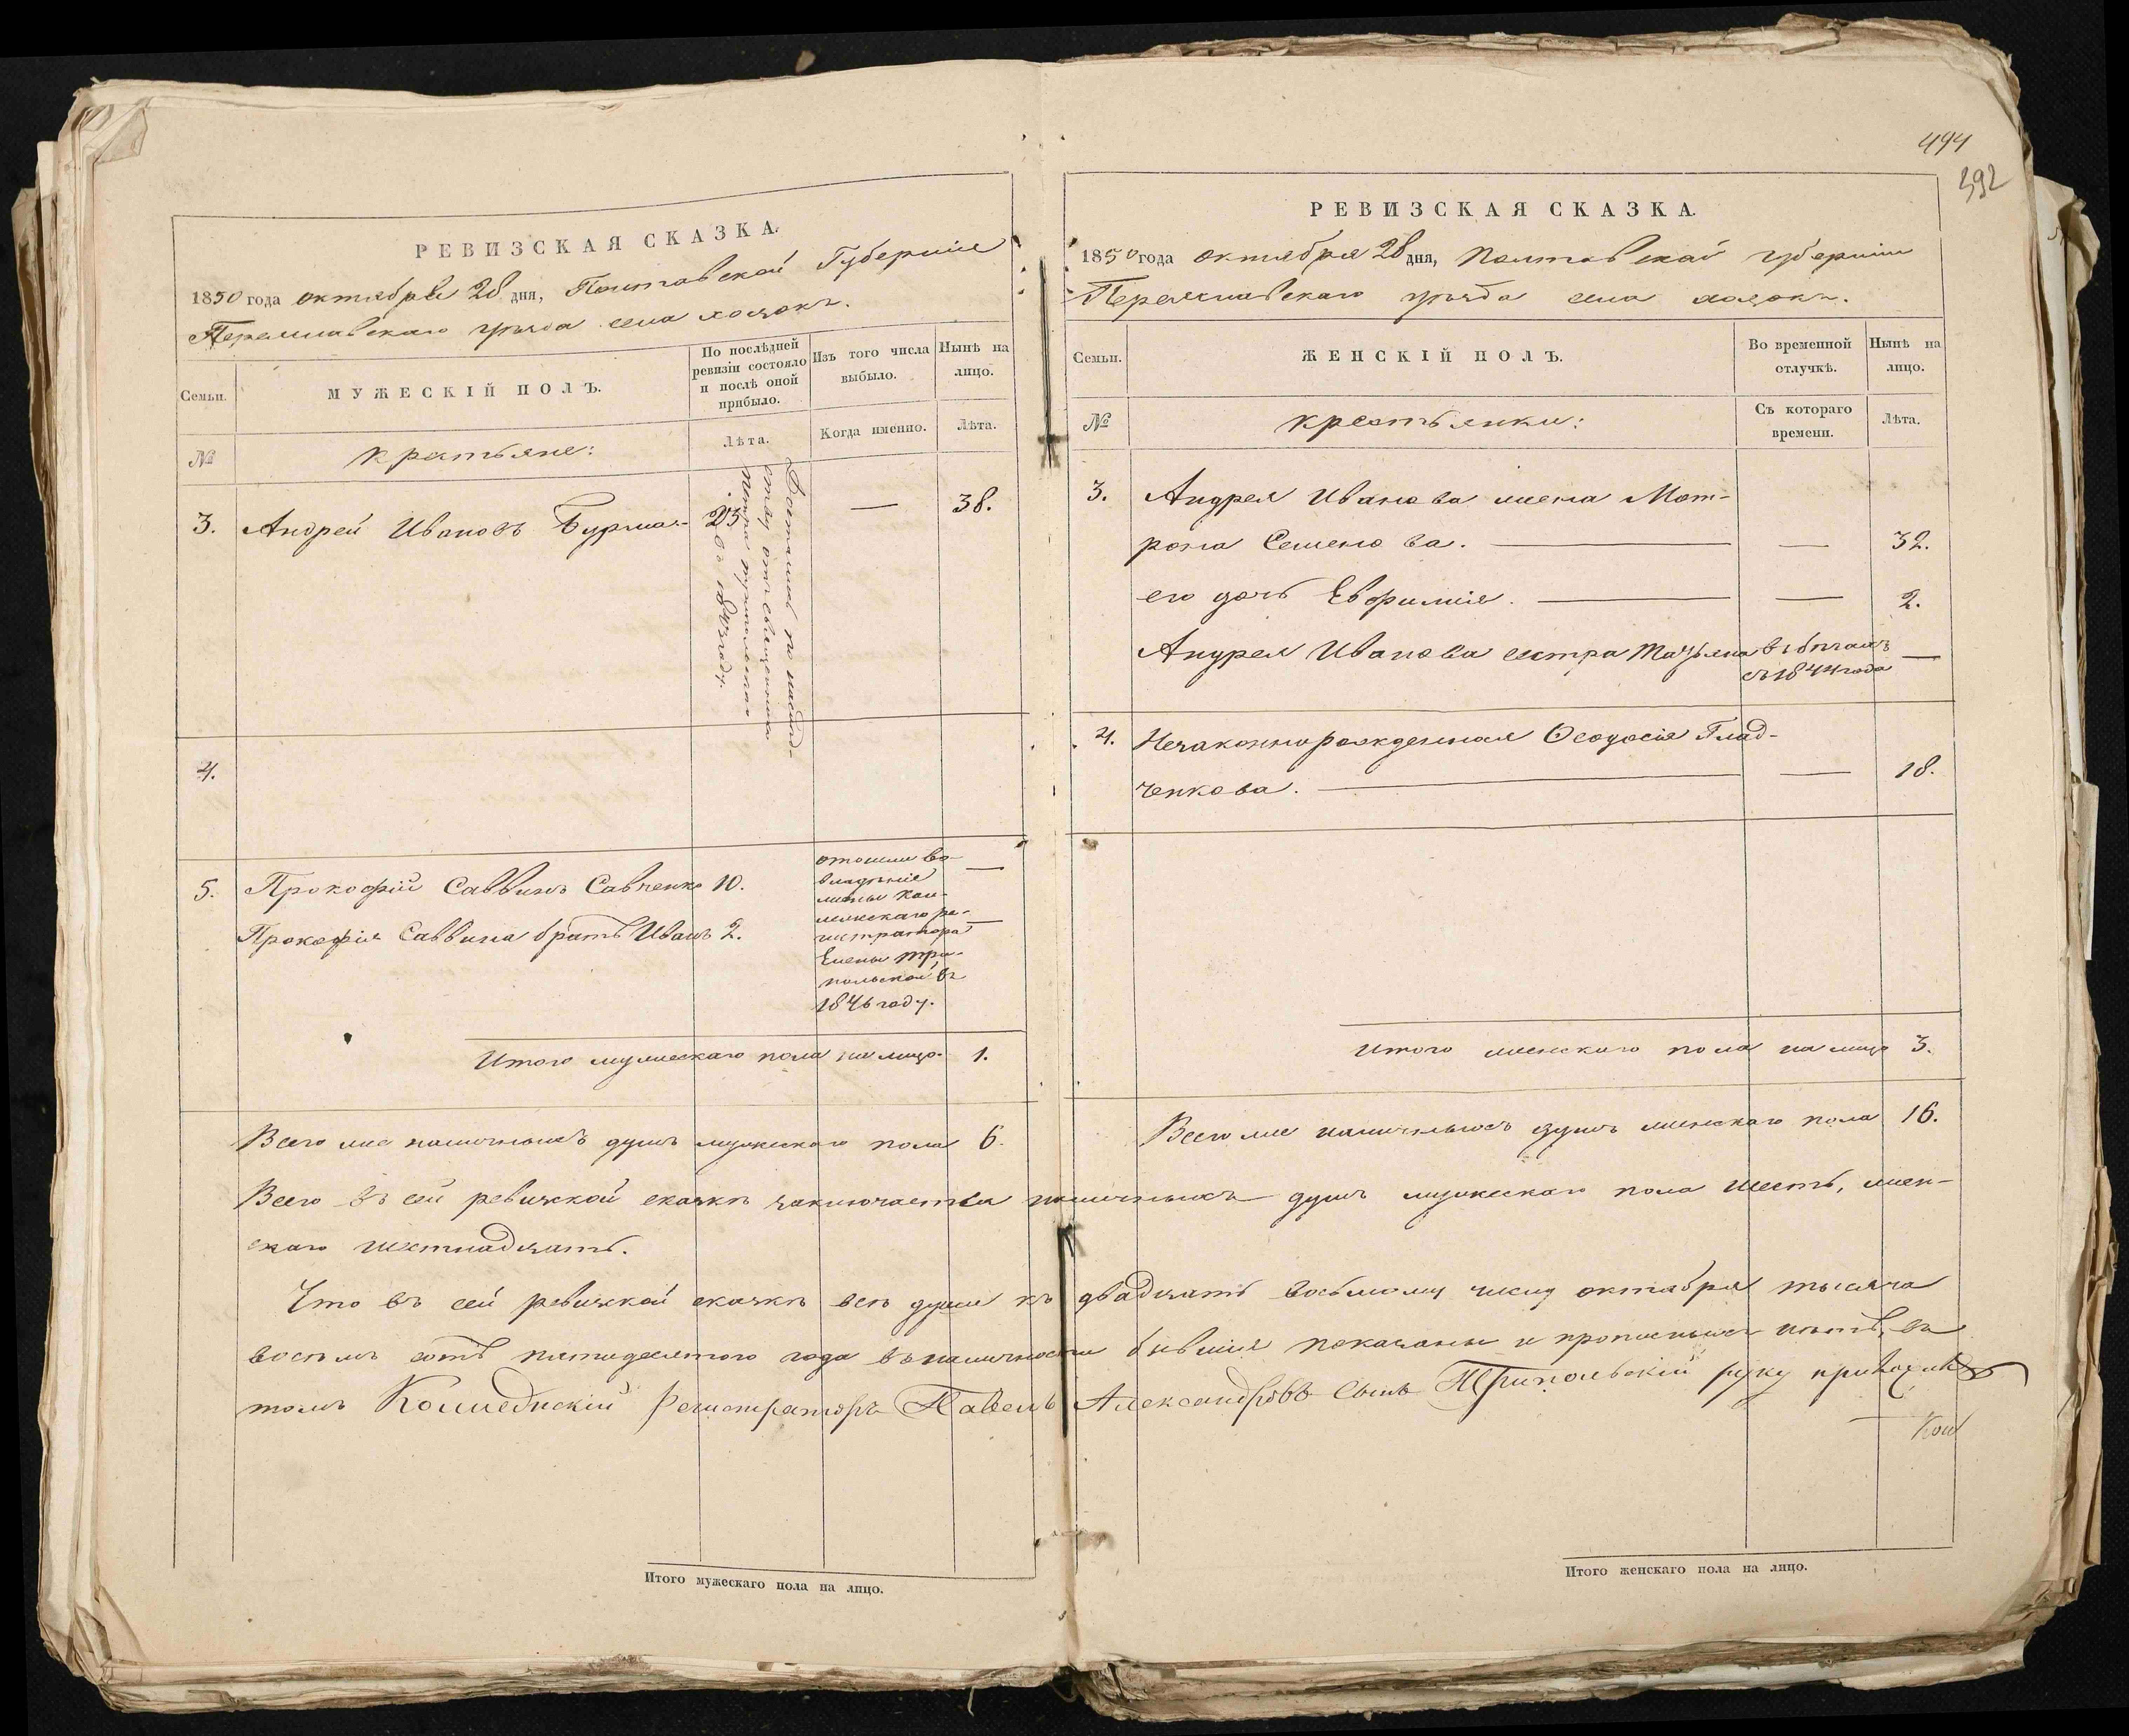 494
392
РЕВИЗСКАЯ СКАЗКА.
1850 года октября 28 дня, Полтавской Губернiи
Переяславскаго уѣзда села хоцокъ.
Семьи.
МУЖЕСКIЙ ПОЛЪ.
По послѣдней
ревизiи состояло
и послѣ оной
прибыло.
Изъ того числа
выбыло.
Нынѣ на
лицо.
№
крестьяне:
Лѣта.
Когда именно.
Лѣта.
3. Андрей Ивановъ Бурма- 23. — 38.
Доставшiеся по наслѣд-
ству отъ священника
Петра трипольскаго
въ году.
4.
5. Прокофiй Саввинъ Савченко 10. —
Прокофiя Саввина братъ Иванъ 2. —
отошли во
владѣнiе
жены кол-
лежскаго ре-
гистратора
Елены три-
польской въ
1846 году.
Итого мужескаго пола на лицо. 1.
Всего же наличныхъ душъ мужескаго пола 6.
РЕВИЗСКАЯ СКАЗКА.
1850 года октября 28 дня, Полтавской губернiи
Переяславскаго уѣзда села хоцокъ.
Семьи.
ЖЕНСКIЙ ПОЛЪ.
Во временной
отлучкѣ.
Нынѣ на
лицо.
№
крестьянки:
Съ котораго
времени.
Лѣта.
3. Андрея Иванова жена Мот-
рона Семенова. — — 32.
его дочь Евфимiя. — — 2.
Андрея Иванова сестра Татьяна въ бѣгахъ —
съ 1844 года
4. Незаконнорожденная Ѳеодосiя Глад-
ченкова. — — 18.
Итого женскаго пола на лицо 3.
Всего же наличныхъ душъ женскаго пола 16.
Всего въ сей ревизской сказкѣ заключается наличныхъ душъ мужескаго пола шесть, жен-
скаго шестнадцать.
Что въ сей ревизской сказкѣ всѣ души къ двадцать восьмому числу октября тысяча
восемь сотъ пятидесятого года въ наличности бывшiя показаны и прописныхъ нѣтъ, въ
томъ Коллежскiй Регистраторъ Павелъ Александровъ Сынъ Трипольскiй руку приложилъ
Кол
Итого мужескаго пола на лицо.
Итого женскаго пола на лицо.